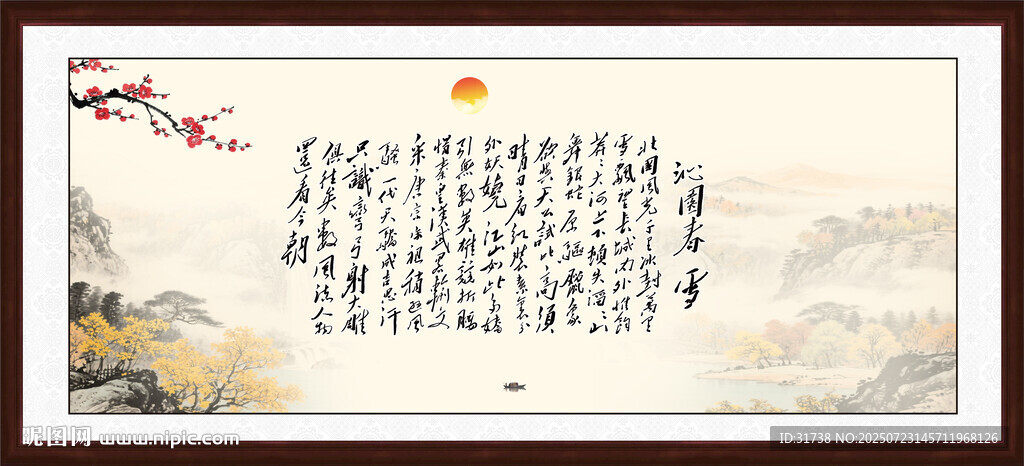 沁園春 雪
北國風光千里冰封萬里
雪飄望長城內外惟餘
莽々大河上下頓失滔々山
舞銀蛇原驅臘象
欲與天公試比高須
晴日看紅裝素裹分
外妖嬈江山如此多嬌
引無數英雄競折腰
惜秦皇漢武略輸文
采唐宗宋祖稍遜風
騷一代天驕成吉思汗
只識彎弓射大雕
俱往矣數風流人物
還看今朝
昵图网 www.nipic.com
ID:31738 NO:20250723145711968126